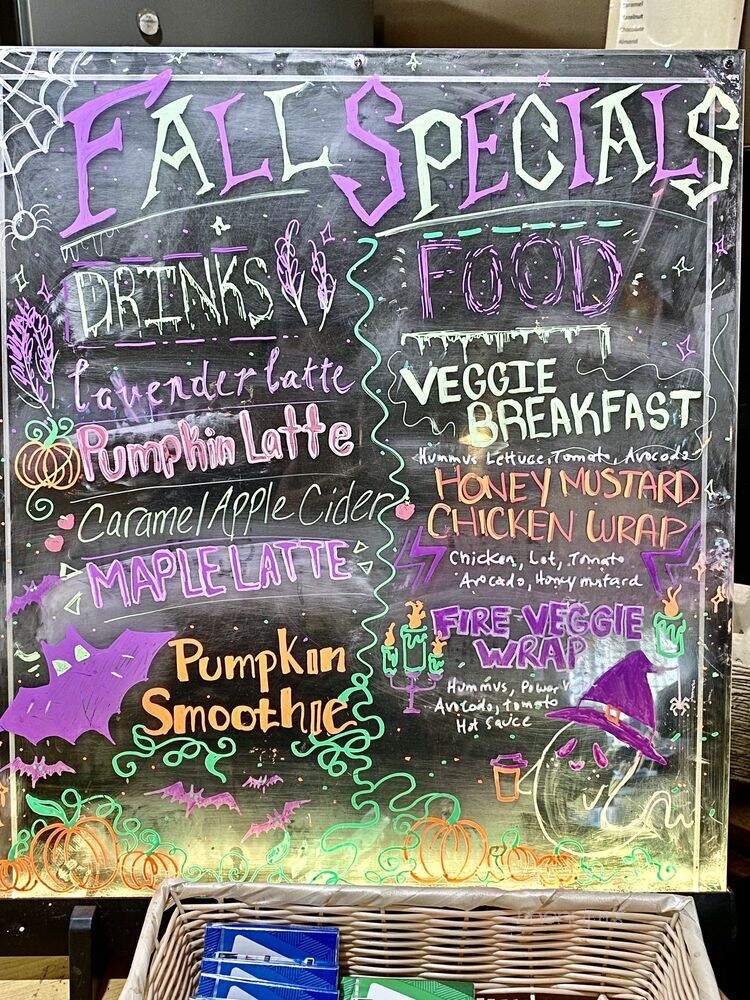 Caramel
Hazelnut
Chocolate
Almond
FALL SPECIALS
DRINKS
Lavender Latte
Pumpkin Latte
Caramel Apple Cider
MAPLE LATTE
Pumpkin
Smoothie
FOOD
VEGGIE
BREAKFAST
Hummus Lettuce, Tomato, Avocado
HONEY MUSTARD
CHICKEN WRAP
Chicken, Let, Tomato
Avocado, Honey mustard
FIRE VEGGIE
WRAP
Hummus,
Avocado, tomato
Hot Sauce